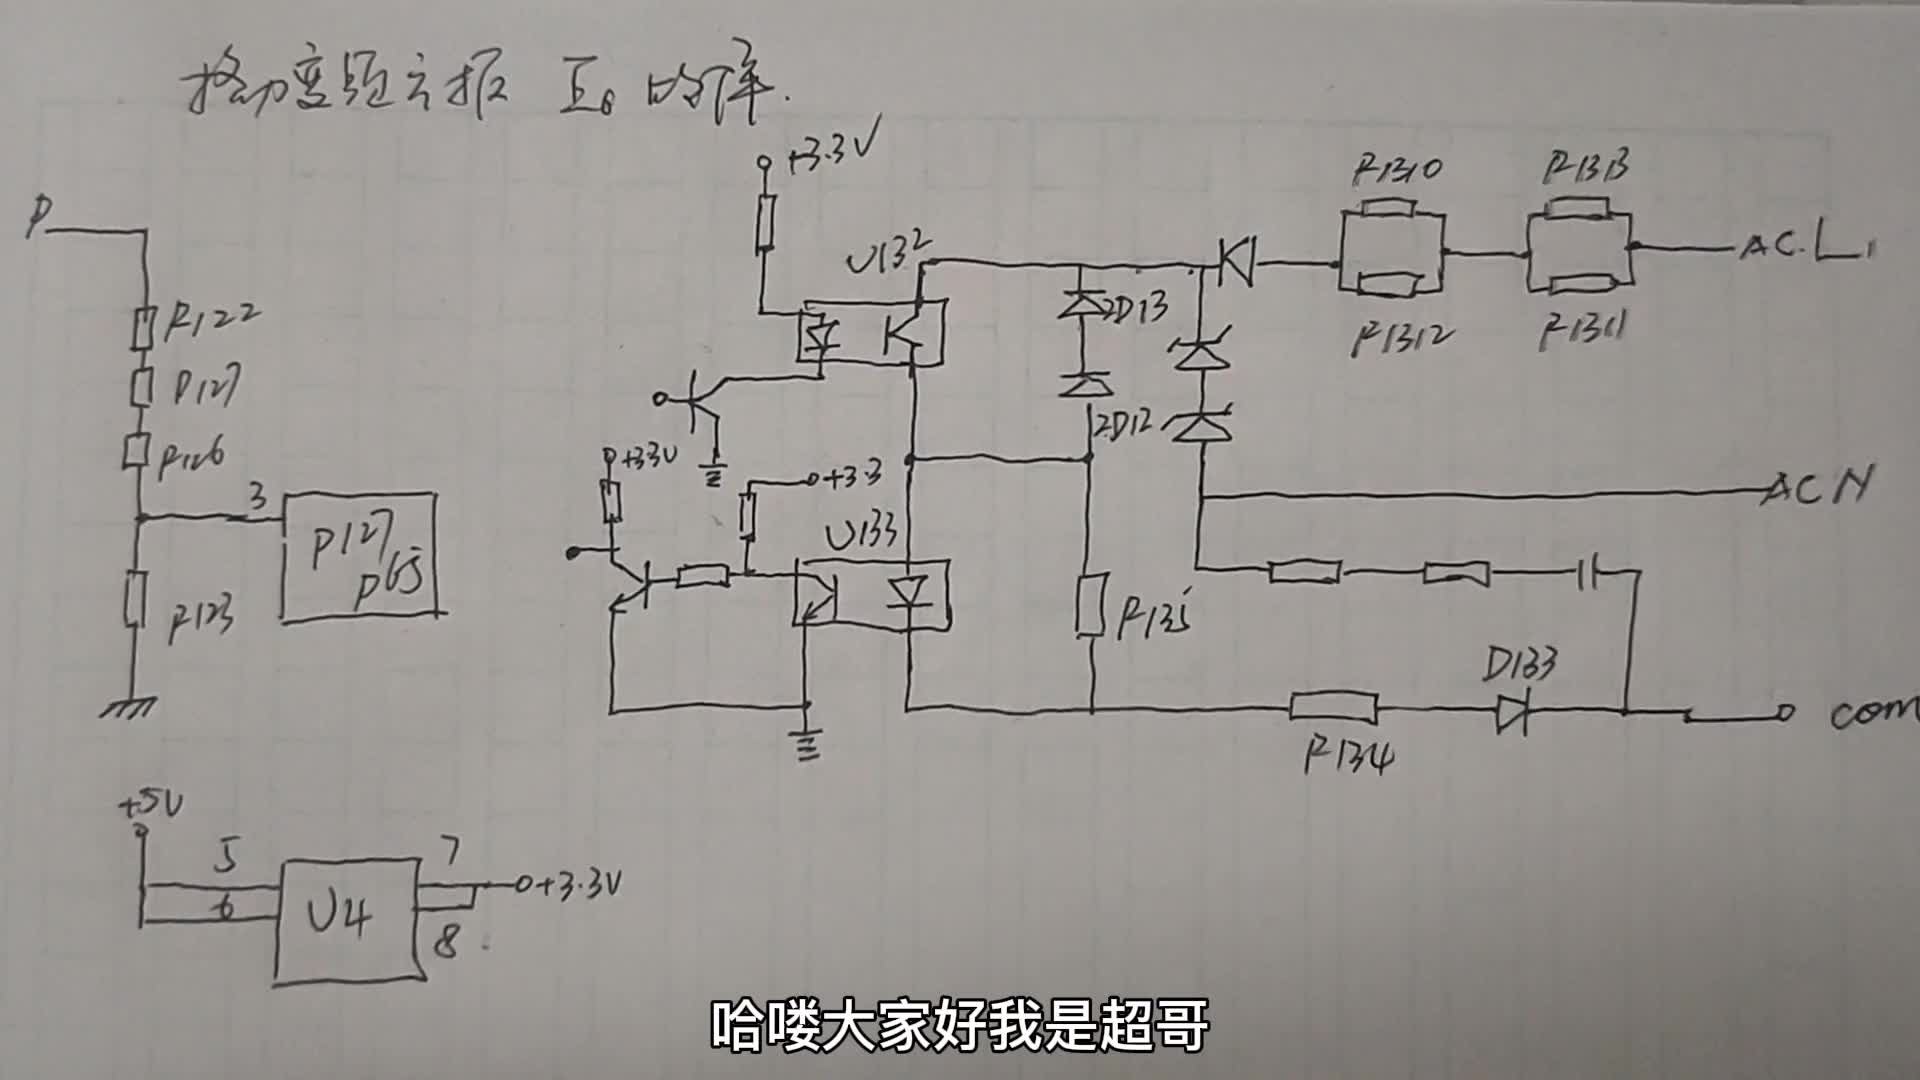 格力变频主报 E6 的解.
+3.3V
P
R122
P127
R126
3
P127
P65
R123
U132
2D13
2D12
R1310
R1313
R1312
R1311
AC.L1
AC N
+3.3V
+3.3
U133
R135
D133
R134
com
+5V
5
6
U4
7
8
+3.3V
哈喽大家好我是超哥